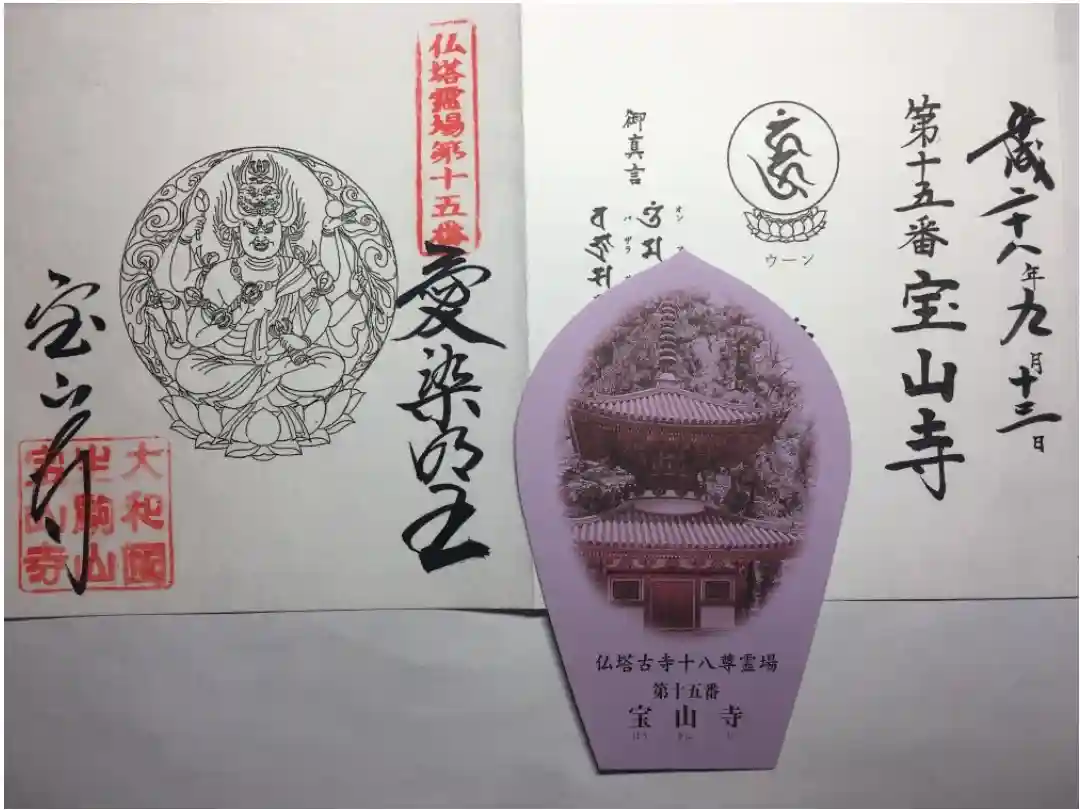 平成二十八年九月十三日
第十五番宝山寺
ウーン
御真言
オン
バザラ
仏塔霊場第十五番
愛染明王
宝山寺
大和國
生駒山
宝山寺
仏塔古寺十八尊霊場
第十五番
宝山寺
ほうざんじ